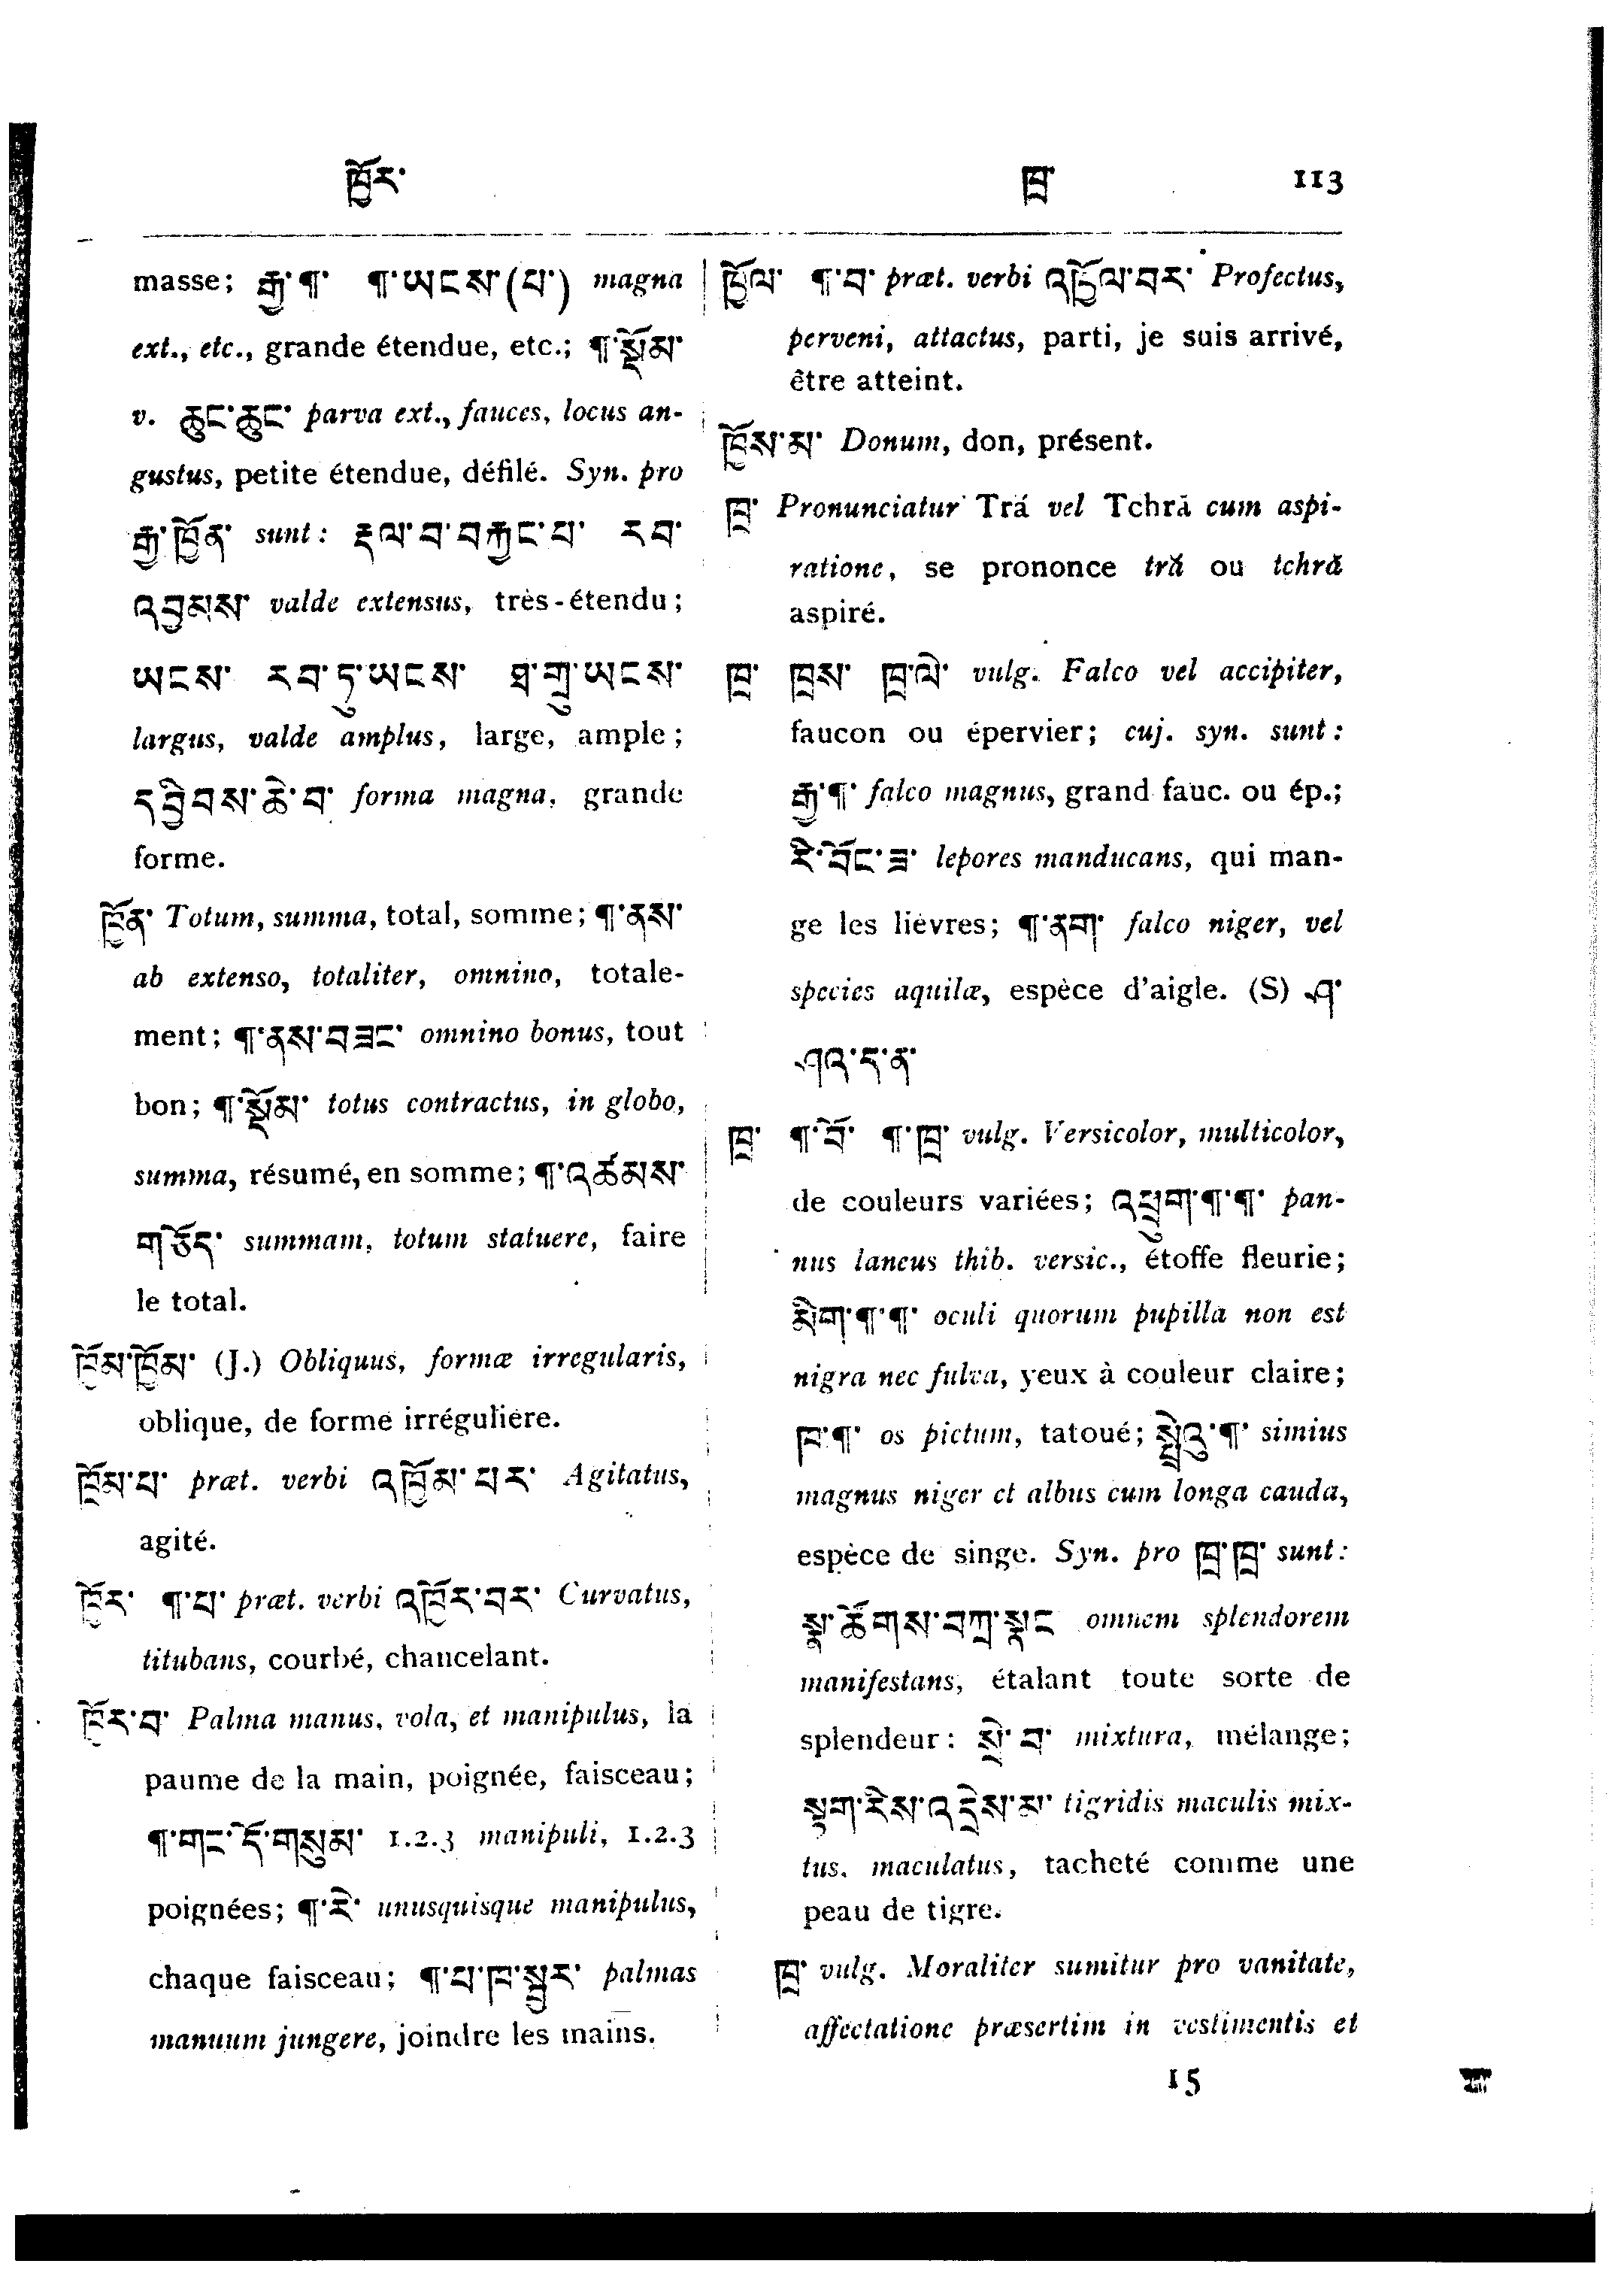 ཁྱོར་ ཁྲ་ 113
masse; རྒྱ་¶་ ¶་ཡངས་(པ་) magna
ext., etc., grande étendue, etc.; ¶་སྡོམ་
v. ཆུང་ཆུང་ parva ext., fauces, locus an-
gustus, petite étendue, défilé. Syn. pro
རྒྱ་ཁྱོན་ sunt: རྡལ་བ་བརྐྱང་པ་ རབ་
འབྱམས་ valde extensus, très-étendu;
ཡངས་ རབ་ཏུ་ཡངས་ ཐ་གྲུ་ཡངས་
largus, valde amplus, large, ample;
དབྱིབས་ཆེ་བ་ forma magna, grande
forme.
ཁྱོན་ Totum, summa, total, somme; ¶་ནས་
ab extenso, totaliter, omnino, totale-
ment; ¶་ནས་བཟང་ omnino bonus, tout
bon; ¶་སྡོམ་ totus contractus, in globo,
summa, résumé, en somme; ¶་འཚམས་
གཅོད་ summam, totum statuere, faire
le total.
ཁྱོམ་ཁྱོམ་ (J.) Obliquus, formæ irregularis,
oblique, de forme irrégulière.
ཁྱོམ་པ་ præt. verbi འཁྱོམ་པར་ Agitatus,
agité.
ཁྱོར་ ¶་པ་ præt. verbi འཁྱོར་བར་ Curvatus,
titubans, courbé, chancelant.
ཁྱོར་བ་ Palma manus, vola, et manipulus, la
paume de la main, poignée, faisceau;
¶་གང་དོ་གསུམ་ 1.2.3 manipuli, 1.2.3
poignées; ¶་རེ་ unusquisque manipulus,
chaque faisceau; ¶་པ་ཁ་སྦྱར་ palmas
manuum jungere, joindre les mains.
ཁྱོལ་ ¶་བ་ præt. verbi འཁྱོལ་བར་ Profectus,
perveni, attactus, parti, je suis arrivé,
être atteint.
ཁྱོས་མ་ Donum, don, présent.
ཁྲ་ Pronunciatur Trá vel Tchră cum aspi-
ratione, se prononce tră ou tchră
aspiré.
ཁྲ་ ཁྲས་ ཁྲ་ལེ་ vulg. Falco vel accipiter,
faucon ou épervier; cuj. syn. sunt:
རྒྱ་¶་ falco magnus, grand fauc. ou ép.;
རི་བོང་ཟ་ lepores manducans, qui man-
ge les lièvres; ¶་ནག་ falco niger, vel
species aquilæ, espèce d'aigle. (S) ཤ་
ཤའ་ད་ན་
ཁྲ་ ¶་བོ་ ¶་ཁྲ་ vulg. Versicolor, multicolor,
de couleurs variées; འཕྲུག་¶་¶་ pan-
nus laneus thib. versic., étoffe fleurie;
མིག་¶་¶་ oculi quorum pupilla non est
nigra nec fulva, yeux à couleur claire;
ཁ་¶་ os pictum, tatoué; སྤྲེའུ་¶་ simius
magnus niger et albus cum longa cauda,
espèce de singe. Syn. pro ཁྲ་ཁྲ་ sunt:
སྣ་ཚོགས་བཀྲ་སྣང omnem splendorem
manifestans, étalant toute sorte de
splendeur: སྲེ་བ་ mixtura, mélange;
སྟག་རིས་འདྲེས་མ་ tigridis maculis mix-
tus. maculatus, tacheté comme une
peau de tigre.
ཁྲ་ vulg. Moraliter sumitur pro vanitate,
affectatione præsertim in vestimentis et
15